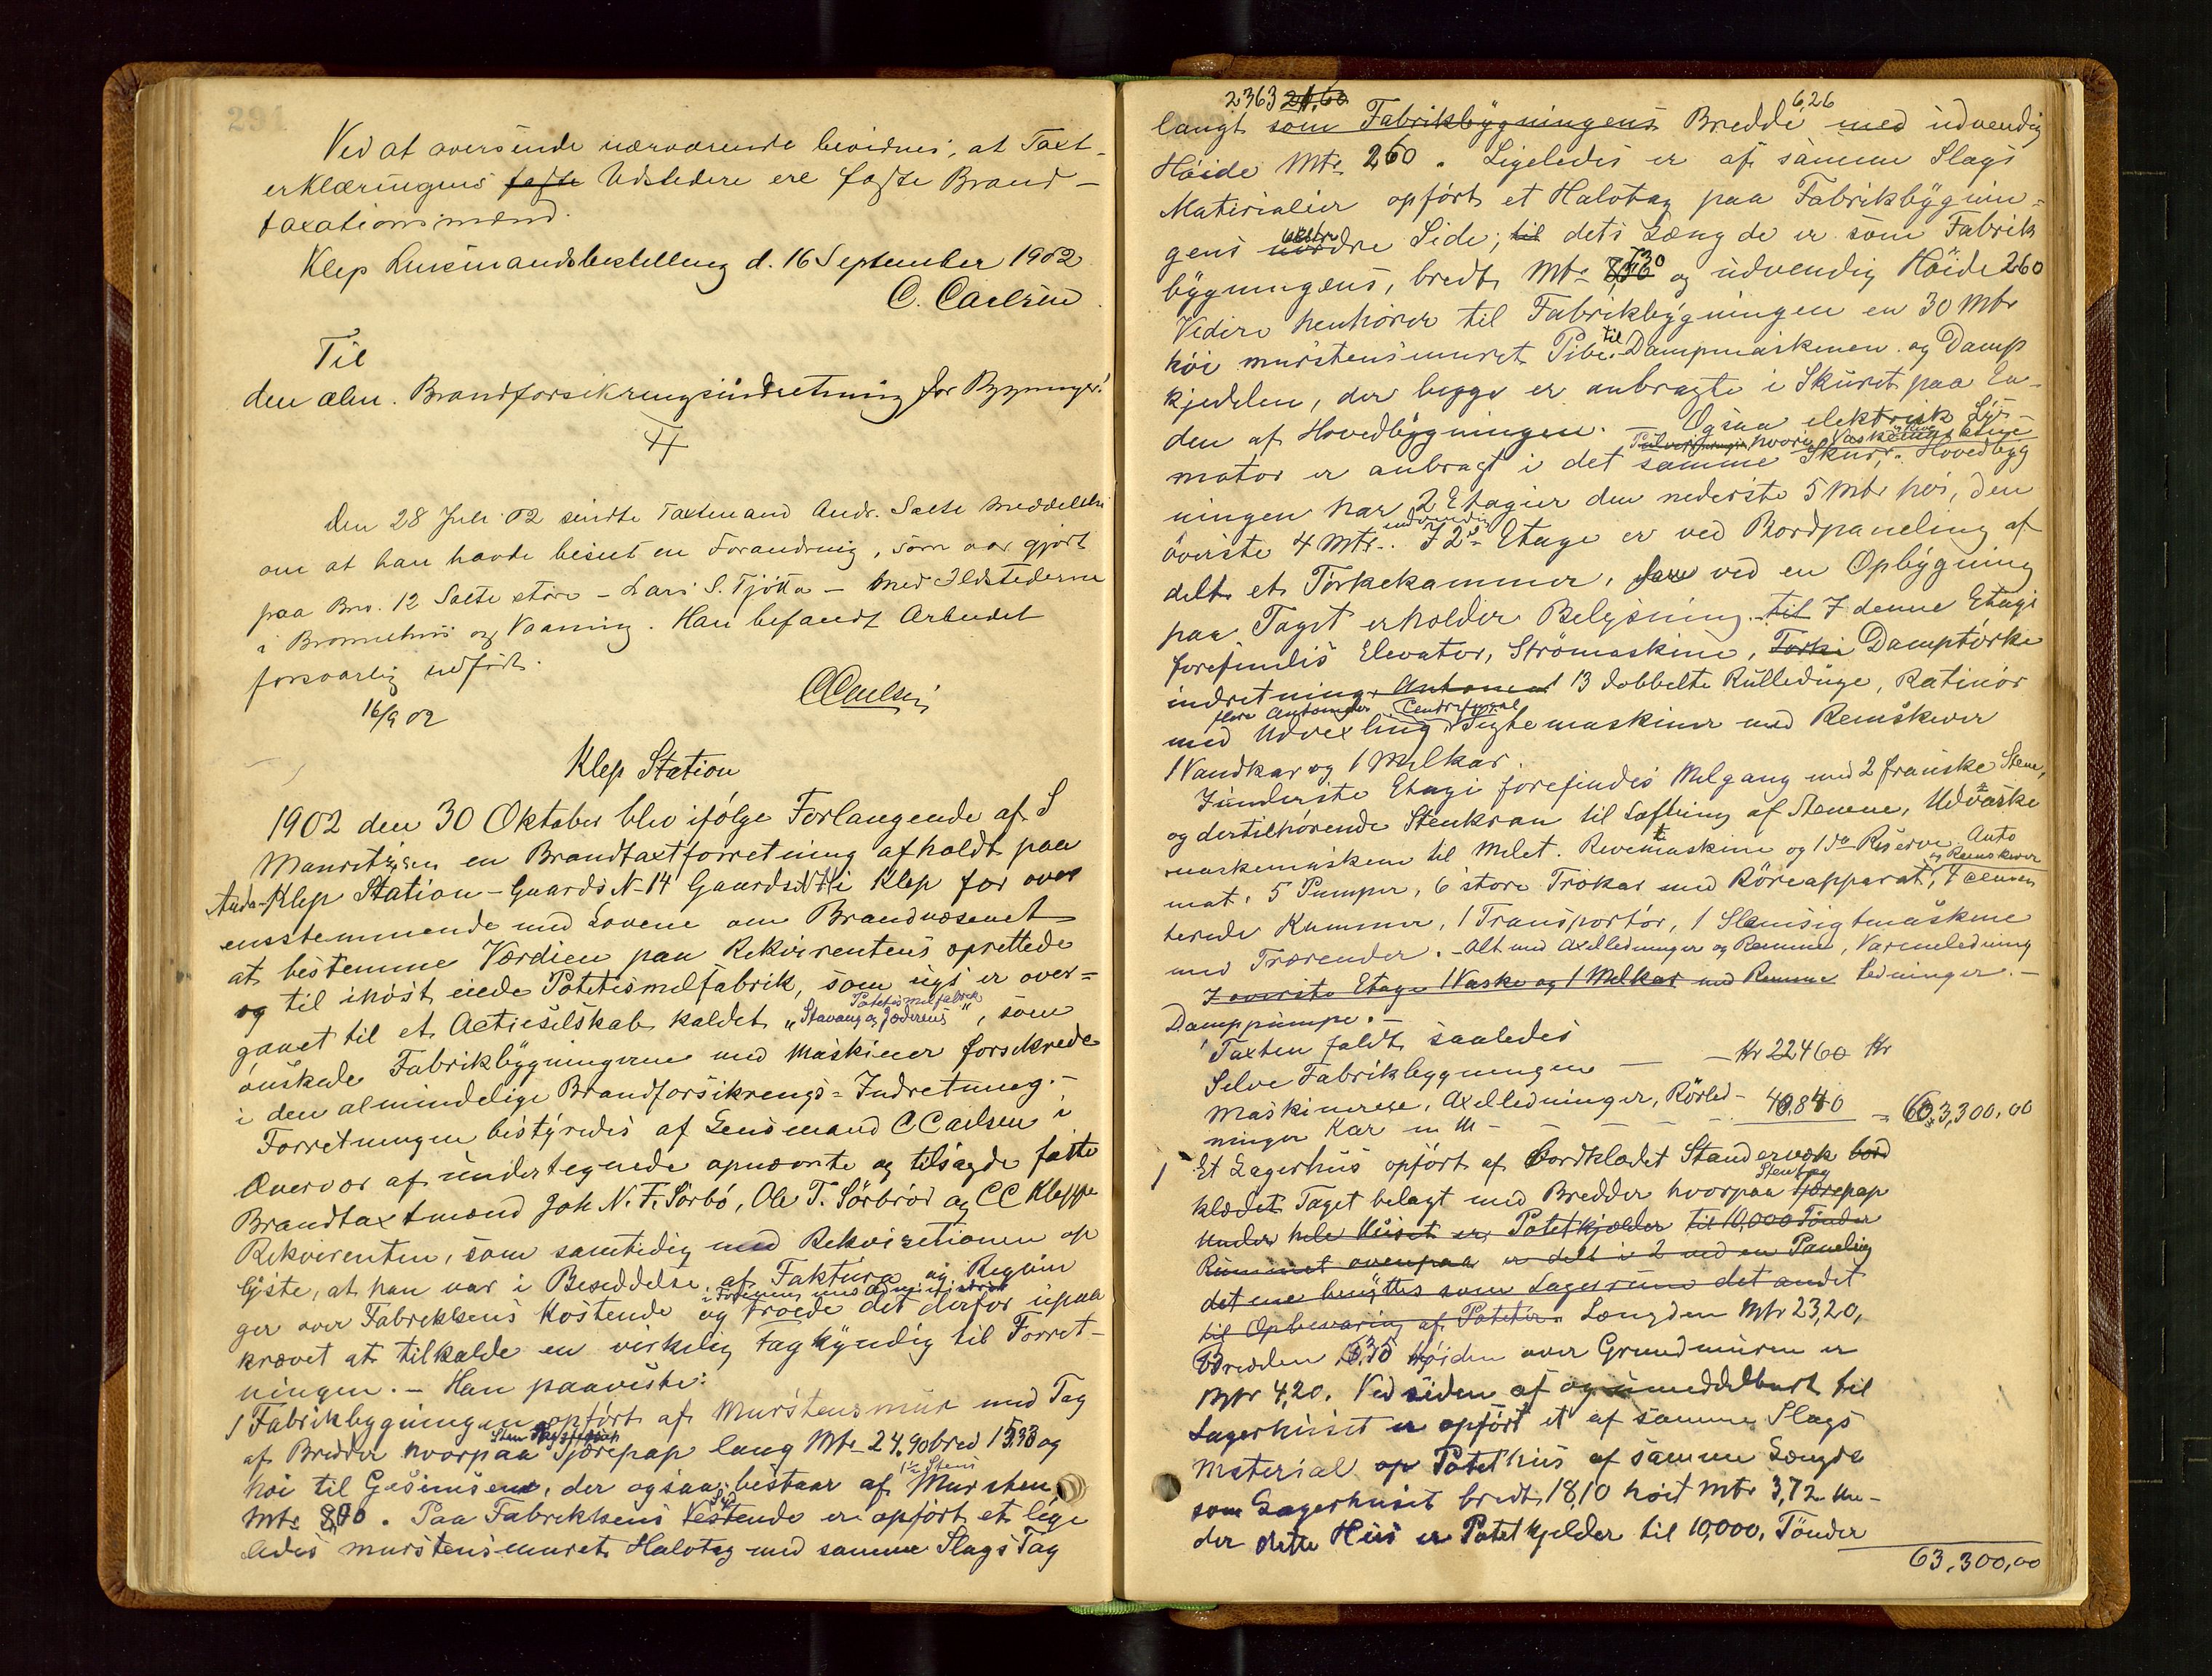 291
Ved at oversende nærværende bevidnes, at Taxt-
erklæringens faste Udstedere ere faste Brand-
taxationsmænd.
Klep Lensmandsbestilling d. 16 September 1902
C. Carlsen
Til
den alm. Brandforsikringsindretning for Bygninger.
Den 28 Juli 02 sendte Taxtmand Andr. Salte Meddelelse
om at han havde beseet en Forandring, som var gjort
paa Bno. 12 Salte store - Lars S. Tjötta - med Ildstederne
i Brønnehus og Vaaning. Han befandt Arbeidet
forsvarlig udført.
16/9 02
CCarlsen
Klep Station
1902 den 30 Oktober blev ifølge Forlangende af S
Mauritzsen en Brandtaxtforretning afholdt paa
Anda-Klep Station - Gaards N- 14 i Klep for over
ensstemmende med Lovene om Brandvæsenet
at bestemme Værdien paa Rekvirentens oprettede
og til ihøst eiede Potetesmelfabrik, som sigs er over=
Potetesmelfabrik
gaaet til et Actieselskab kaldet "Stavang og Jæderens", som
ønskede Fabrikbygningerne med Maskiner forsikrede
i den almindelige Brandforsikrings=Indretning.-
Forretningen bestyredes af Lensmand CCarlsen i
Overvær af undertegnede opnævnte og tilsagde faste
Brandtaxtmænd Joh N. F. Sørbø, Ole T. Sørbrød og CC Kleppe
Rekvirenten, som samtidig med Rekvisitionen op
lyste, at han var i Besiddelse af Faktura og Regnin
ger over Fabrikkens Kostende og troede det derfor upaa
krævet at tilkalde en virkelig Fagkyndig til Forret-
ningen. - Han paaviste:
1 Fabrikbygningen opført af Murstensmur med Tag
af Bredder hvorpaa Tjærepap lang Mtr 24.90 bred 15,33 og
1½ Stens
høi til Gesimsen, der ogsaa bestaar af Mursten
Mtr 8,00. Paa Fabrikkens Vestende er opført et lige
ledes murstensmuret Halvtag med samme Slags Tag
2363 21,60
6,26
langt som Fabrikbygningens Bredde med udvendig
Høide Mtr 260. Ligeledes er af samme Slags
Materialier opført et Halvtag paa Fabrikbygnin=
vestre
gens nordre Side; til dets Længde er som Fabrik
bygningens, bredt Mtr og udvendig Høide 260
Videre henhører til Fabrikbygningen en 30 Mtr
til
høi murstensmuret Pibe. Dampmaskinen og Damp
kjedelen, der begge er anbragte i Skuret paa En-
den af Hovedbygningen. - Ogsaa elektrisk Lys-
motor er anbragt i det samme Skur. Hovedbyg
ningen har 2 Etagier den nederste 5 Mtr høi, den
indvendig
øverste 4 Mtr. I 2d Etage er ved Bordpaneling af
delt et Tørkekammer, ved en Opbygning
paa Taget erholder Belysning. til I denne Etage
forefindes Elevator, Strømaskine, Tørke Damptørke
indretning, 13 dobbelte Rulleduge, Ratinør
flere Automater Centrifugal
med Udvexling, Sigtemaskiner med Remskiver
1 Vandkar og 1 Melkar.
I underste Etage forefindes Melgang med 2 franske Stene,
og dertilhørende Stenkran til Løftning af Stenene, Udvaske
maskemaskine til Melet. Rivemaskine og 1 do Reserve Auto
og Remskiver
mat. 5 Pumper, 6 store Trøkar med Røreapparat, 4 cemen
terede Kummer, 1 Transportør, 1 Slemsigtmaskine
med Trærender. - Alt med Axelledninger og Remme, Varmeledning
I øverste Etage 1 Vaske og 1 Melkar med Remme ledninger. -
Damppumpe. -
Taxten faldt saaledes
Selve Fabrikbygningen - - Kr 22460 Kr
Maskinerese, Axelledninger, Rørled- 40,840 - 63,300,00
ninger Kar m M - - - -
1 Et Lagerhus opført af Bordklædet Standerværk bord
Stentag
klædet Taget belagt med Bredder hvorpaa tjærepap
Under hele Huset er Potetkjælder til 10,000 Tønder
Rummet ovenpaa er delt i 2 ved en Paneling
det ene benyttes som Lagerrum det andet
til Opbevaring af Poteter. Længden Mtr 23,20,
Bredden 6,35 Høiden over Grundmuren er
Mtr 4,20. Ved siden af og umeddelbart til
Lagerhuset er opført et af samme Slags
Material op Potethus af samme Længde
som Lagerhuset bredt 18,10 høit Mtr 3,72. Un-
der dette Hus er Potetkjelder til 10,000, Tönder
63,300,00